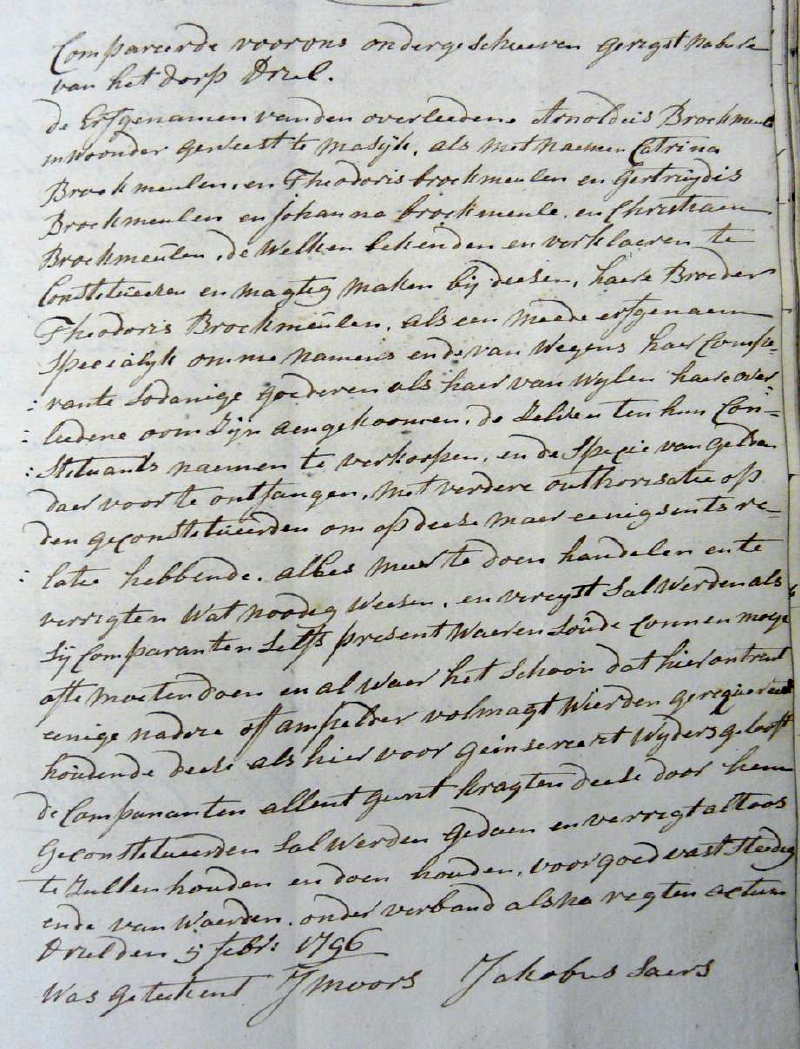 Compareerde voor ons ondergeschreeven gerigtsnaburen
van het dorp Driel.
de Erfgenamen van den overleedene Arnoldus Brockmeulen
inwoonder geweest te Masyk, als met naemen Catrina
Brockmeulen, en Theodoris brockmeulen en Gertruydis
Brockmeulen en Johanna brockmeule, en Christiaen
Brockmeulen, de Welken bekenden en verklaeren te
Constitueeren en magtig maken bij deesen, haere Broeder
Theodoris Brockmeulen, als een meede erfgenaem
Specialyk omme namens ende van Wegens haer Compa-
rante Sodanige goederen als haer van Wylen haere over
leedene oom Zijn aengekoomen, de Zelven ten hun Con-
stituants naemen te verkoopen, en de Specie van gelde
daer voor te ontfangen, met verdere authorisatie op
den geconstitueerden om op deese maer eenigsents re-
latie hebbende, alles meer te doen handelen en te
verrigten Wat noodig Weesen, en vereyst Sal Werden als
Sij Comparanten Selfs present Waeren Soude connen moge
ofte moeten doen en al Waer het Schoon dat hier ontrent
eenige nadere off ampelder volmagt Wierden gerequireert
houdende deese als hier voor geinsereert Wyders gelooft
de Comparanten allent gunt kragten deese door hem
Geconstitueerden Sal Werden gedaen en verrigt altoos
te Zullen houden en doen houden, voor goed vast Steedig
ende van Waerden, onder verband als na regten actum
Driel den 5 feb: 1796
Was geteekent J moors Jakobus Saers